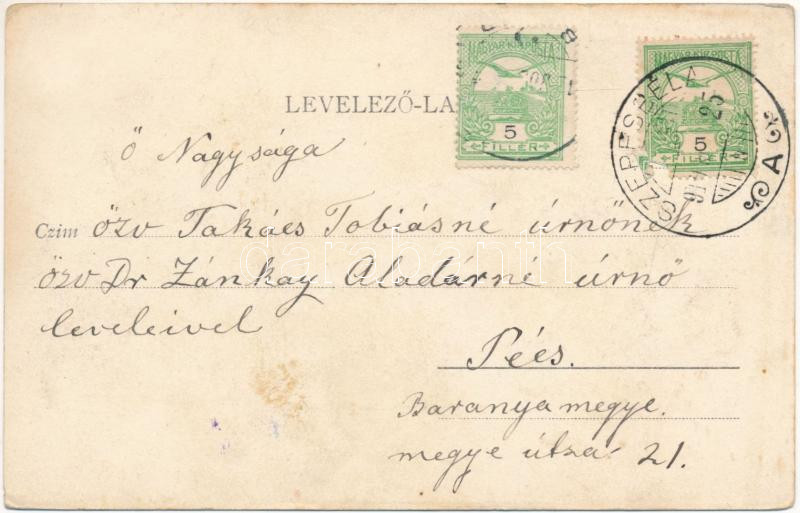 MAGYAR KIR. POSTA
MAGYAR KIR. POSTA
LEVELEZŐ-LA
5
FILLER
5
FILLER
SZEPESBÉLA
A
ő Nagysága
Czim özv Takács Tobiásné úrnőnek
özv Dr Zánkay Aladárné úrnő
leveleivel
Pécs.
Baranyamegye.
megye útza 21.
darabanth